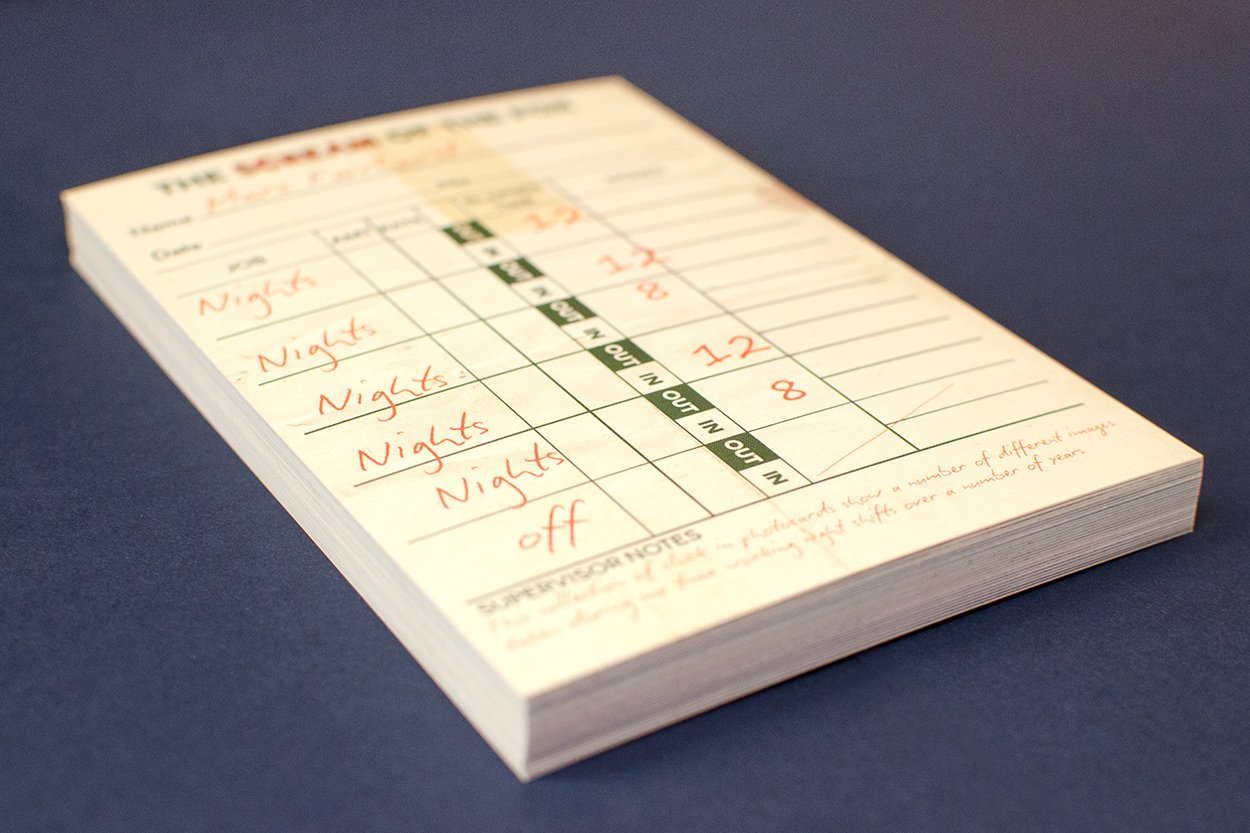 THE SCREAM OF THE
Name
Date
JOB
12
OUT
Nights
12
OUT IN
8
Nights
OUT IN
12
Nights
OUT IN
8
Nights
OUT IN
Nights
OUT IN
off
SUPERVISOR NOTES
This collection of clock in photocards show a number of different images
taken during my time working night shifts over a number of years